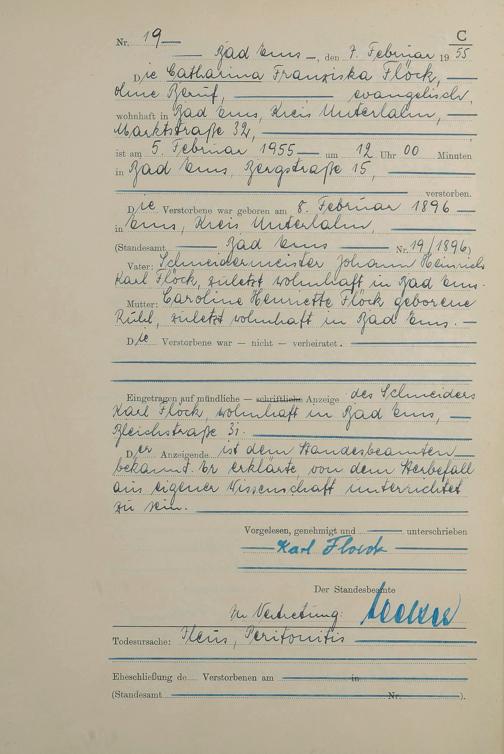 Nr. 19
C
Bad Ems, den 7. Februar 1955
Die Catharina Franziska Flöck,
ohne Beruf, evangelisch,
wohnhaft in Bad Ems, Kreis Unterlahn,
Marktstraße 32,
ist am 5. Februar 1955 um 12 Uhr 00 Minuten
in Bad Ems, Bergstraße 15,
verstorben.
Die Verstorbene war geboren am 8. Februar 1896
in Ems, Kreis Unterlahn,
(Standesamt Bad Ems Nr. 19/1896)
Vater: Schneidermeister Johann Heinrich
Karl Flöck, zuletzt wohnhaft in Bad Ems.
Mutter: Caroline Henriette Flöck geborene
Rühl, zuletzt wohnhaft in Bad Ems. —
Die Verstorbene war — nicht — verheiratet.
Eingetragen auf mündliche — schriftliche Anzeige des Schneiders
Karl Flöck, wohnhaft in Bad Ems,
Bleichstraße 31.
Der Anzeigende ist dem Standesbeamten
bekannt. Er erklärte, von dem Sterbefall
aus eigener Wissenschaft unterrichtet
zu sein.
Vorgelesen, genehmigt und unterschrieben
Karl Floeck
Der Standesbeamte
In Vertretung:
Todesursache: Ileus, Peritonitis
Eheschließung de Verstorbenen am in
(Standesamt Nr. ).